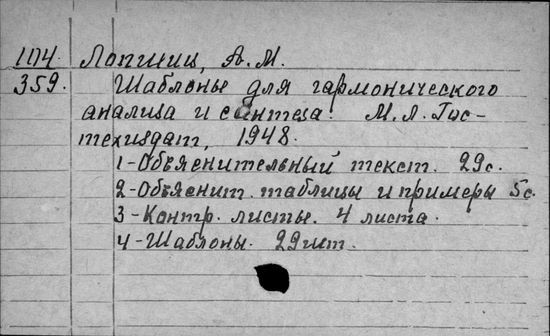 104 Лопшиц, А. М.
359. Шаблоны для гармонического
анализа и синтеза. М.Л. Гос-
техиздат, 1948.
1-Объяснительный текст. 29с.
2-Объяснит. таблицы и примеры 5с.
3-Контр. листы. 4 листа.
4-Шаблоны. 29шт.